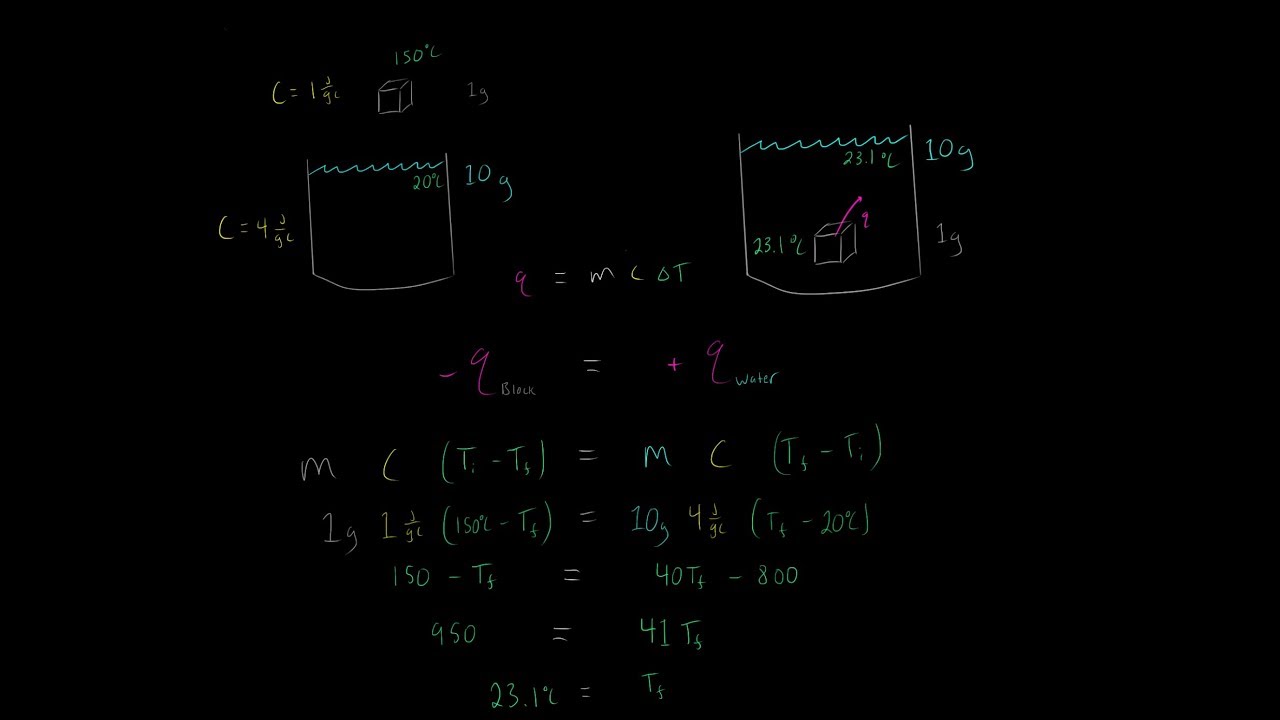 150°C
C = 1 J/gC 1g
20°C 10g
C = 4 J/gC
23.1°C 10g
q
23.1°C 1g
q = m C ΔT
- q Block = + q Water
m C (Ti - Tf) = m C (Tf - Ti)
1g 1 J/gC (150°C - Tf) = 10g 4 J/gC (Tf - 20°C)
150 - Tf = 40Tf - 800
950 = 41 Tf
23.1°C = Tf